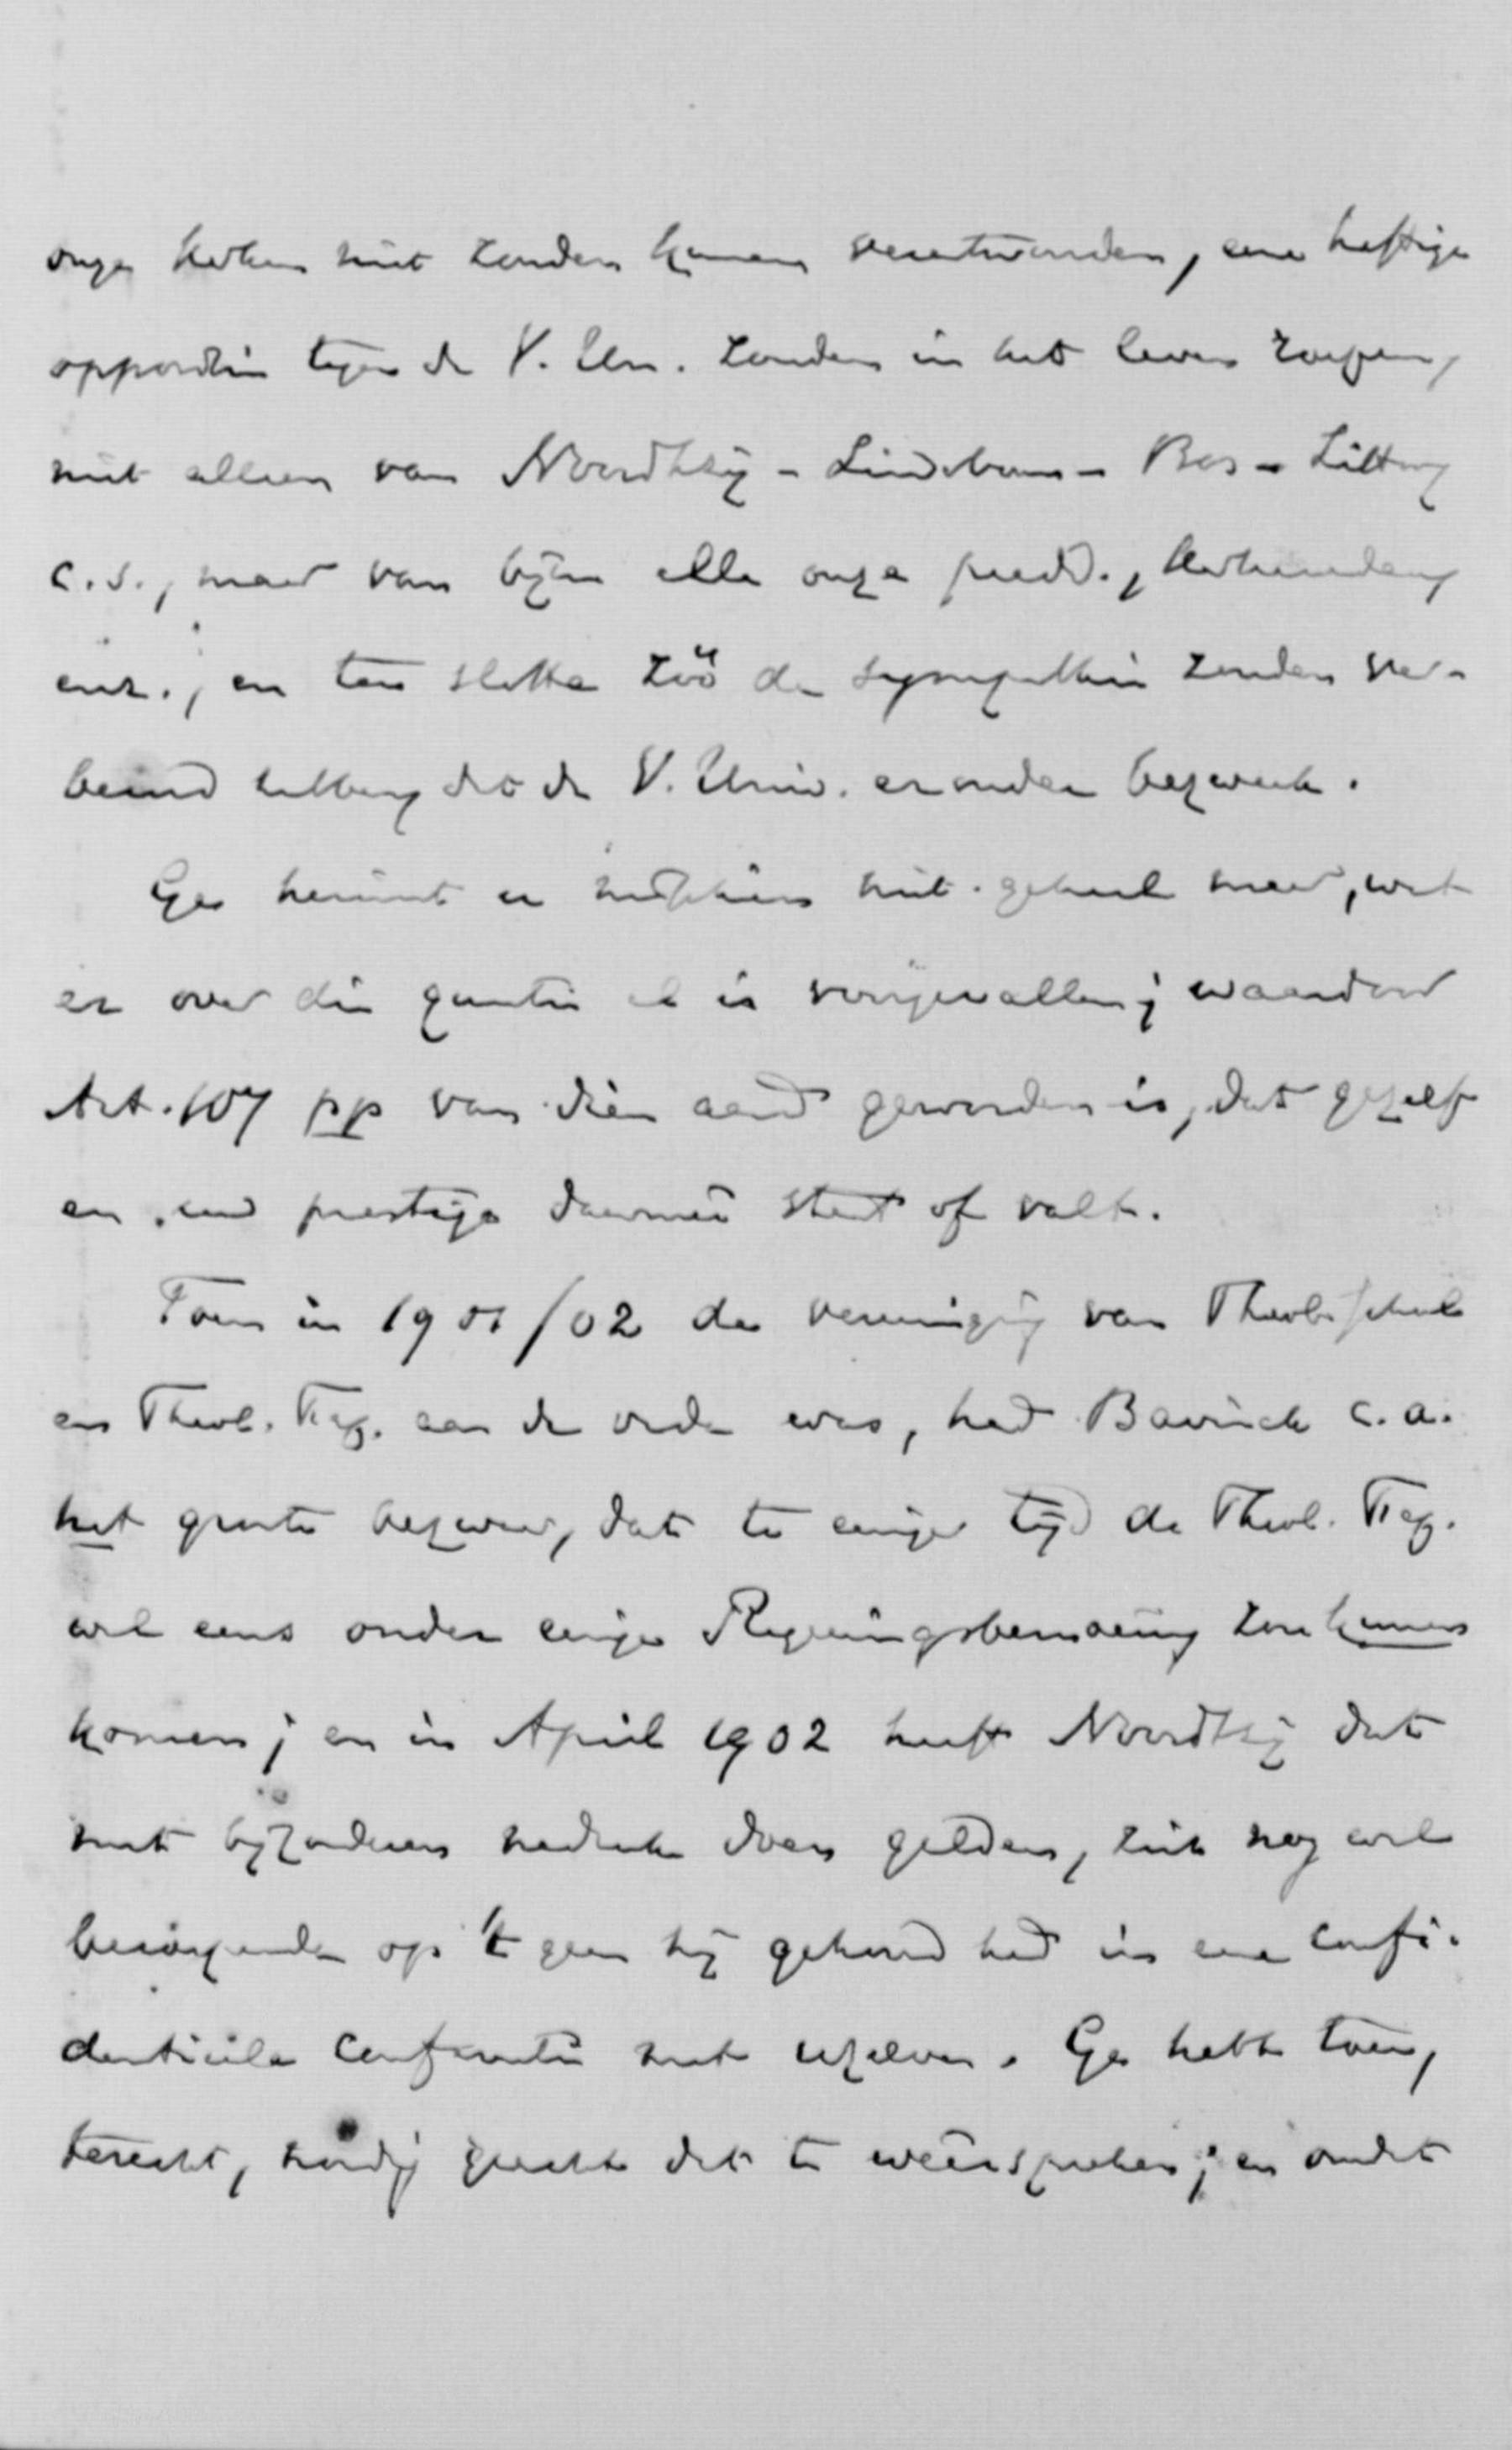 onze kerken niet zouden kunnen verantwoorden, eene heftige
oppositie tegen de V. Un. zouden in het leven roepen,
niet alleen van Noordtzij - Lindeboom - Bos - Littooy
c.s., maar van bijna alle onze predd., kerkeraden
enz.; en ten slotte zóó de sympathie zouden ver-
beurd hebben, dat de V. Univ. eronder bezweek.
Ge herinnert u misschien niet geheel meer, wat
er over die quaestie al is voorgevallen; waardoor
Art. 107 pp van dien aard geworden is, dat gezelf
en uw prestige daarmeê staat of valt.
Toen in 1901/02 de vereeniging van Theol. School
en Theol. Fac. aan de orde was, had Bavinck c.a.
het groote bezwaar, dat te eeniger tijd de Theol. Fac.
wel eens onder eenige Regeeringsbemoeiing zou kunnen
komen; en in April 1902 heeft Noordtzij dat
met bijzonderen nadruk doen gelden, zich nog wel
beroepende op 't geen hij gehoord had in eene confi-
dentieele conferentie met uzelven. Ge hebt toen,
terecht, noodig geacht dat te weêrspreken; en omdat